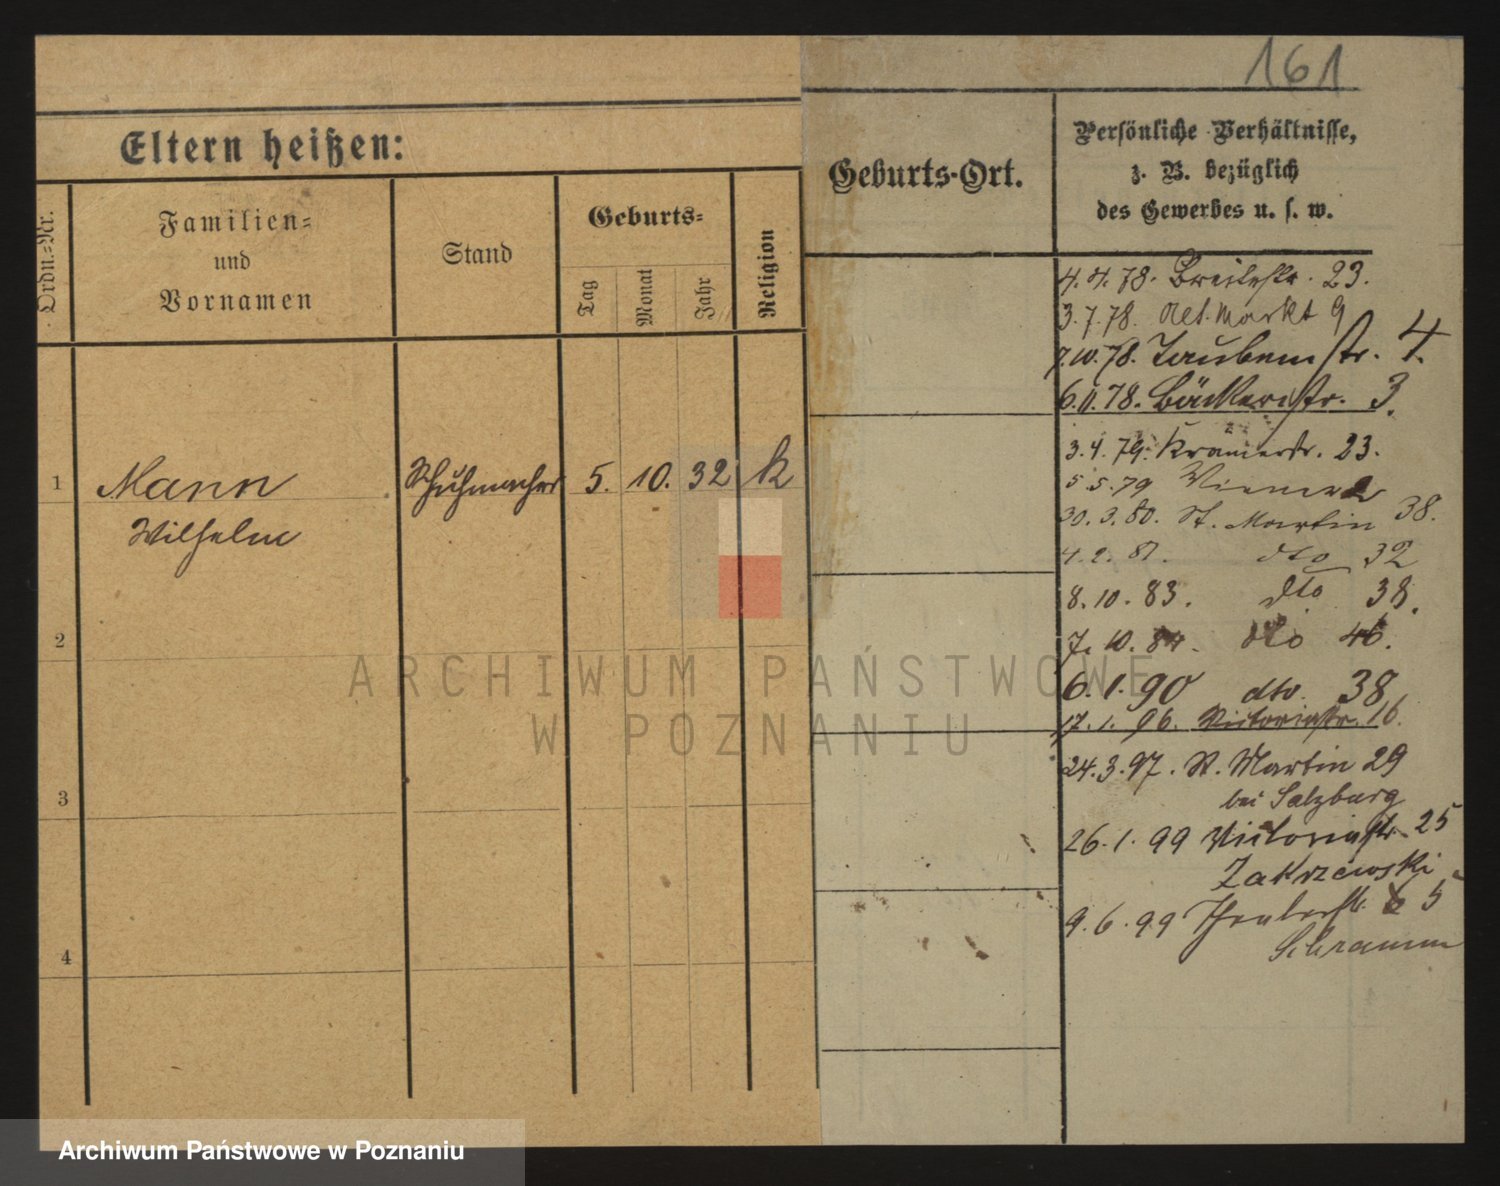 161
Eltern heißen:
Ordn.-Nr.
Familien-
und
Vornamen
Stand
Geburts-
Tag
Monat
Jahr
Religion
Geburts-Ort.
Persönliche Verhältnisse,
z. B. bezüglich
des Gewerbes u. s. w.
1
Mann
Wilhelm
Schuhmacher
5.
10.
32
k
2
3
4
4.4.78. Breitestr. 23.
3.7.78. Alt. Markt 9
7.10.78. Taubenstr. 4.
6.11.78. Bäckerstr. 3.
3.4.79. Krämerstr. 23.
5.5.79
30.3.80. St. Martin 38.
4.2.81. dto 32
8.10.83. dto 38.
7.10.84. dto 46.
6.1.90 dto. 38
17.1.96. Victoriastr. 16.
24.3.97. St. Martin 29
bei Salzburg
26.1.99 Victoriastr. 25
Zakrzewski
9.6.99 Theaterstr. 5
Schramm
ARCHIWUM PAŃSTWOWE
W POZNANIU
Archiwum Państwowe w Poznaniu